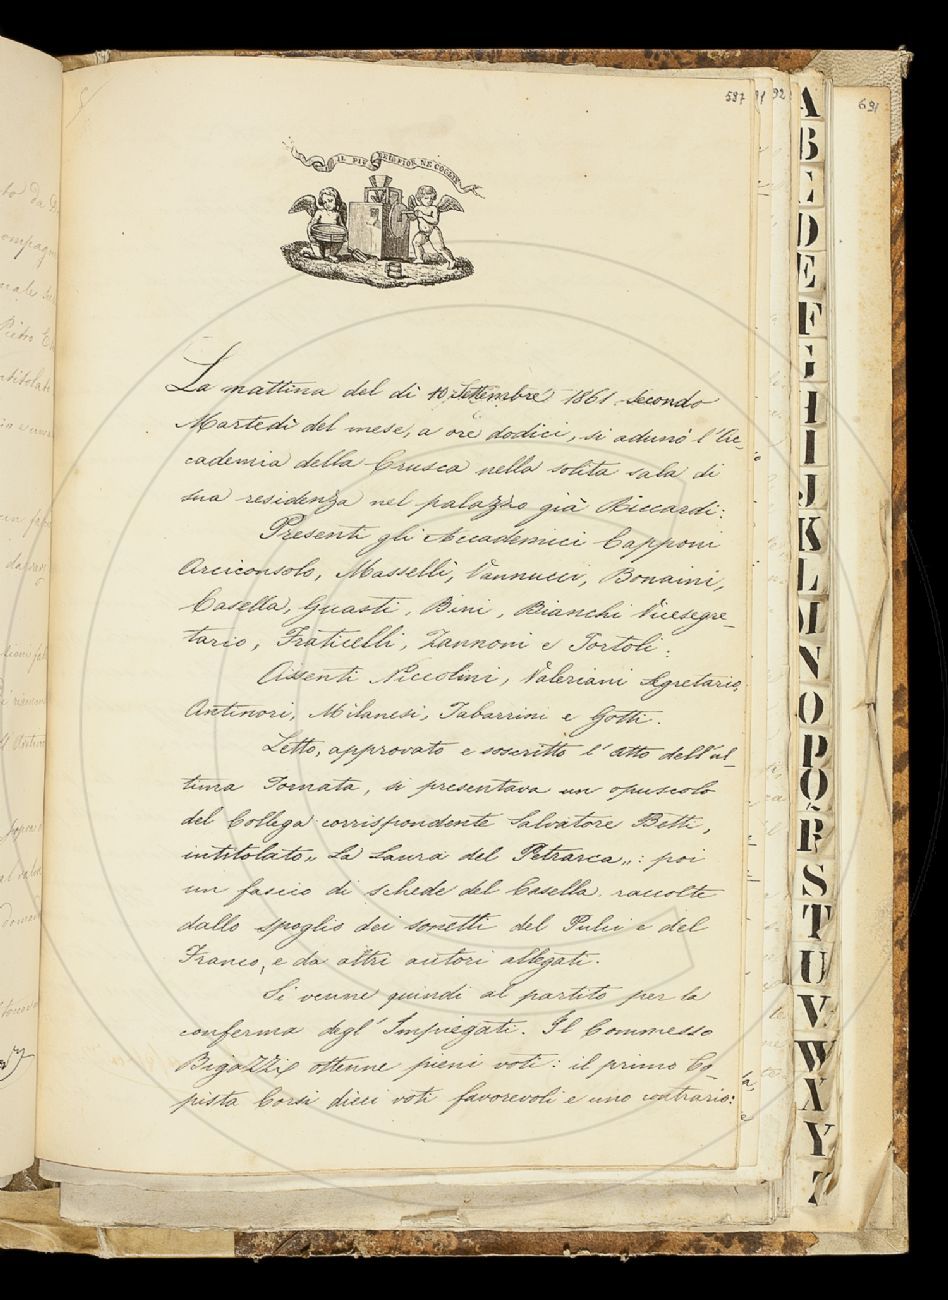 597
92
691
IL PIÙ BEL FIOR NE COGLIE
La mattina del dì 10 Settembre 1861 secondo
Martedì del mese, a ore dodici, si adunò l'Ac-
cademia della Crusca nella solita sala di
sua residenza nel palazzo già Riccardi.
Presenti gli Accademici Capponi
Arciconsolo, Masselli, Vannucci, Bonaini,
Casella, Guasti, Bini, Bianchi Vicesegre-
tario, Fraticelli, Zannoni e Tortoli.
Assenti Niccolini, Valeriani Segretario,
Antinori, Milanesi, Tabarrini e Gotti.
Letto, approvato e soscritto l'Atto dell'ul-
tima Tornata, si presentava un opuscolo
del Collega corrispondente Salvatore Betti,
intitolato „ La Laura del Petrarca „: poi
un fascio di schede del Casella raccolte
dallo spoglio dei sonetti del Pulci e del
Franco, e da altri autori allegati.
Si venne quindi al partito per la
conferma degl'Impiegati. Il Commesso
Bigazzi ottenne pieni voti: il primo Co-
pista Corsi dieci voti favorevoli e uno contrario:
A
B
C
D
E
F
G
H
I
J
K
L
M
N
O
P
Q
R
S
T
U
V
W
X
Y
Z